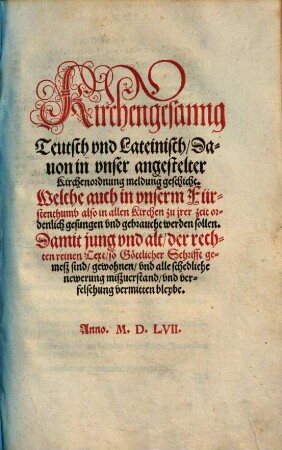 Kirchengesanng
Teutsch vnd Lateinisch/Da-
uon in vnser angestelter
Kirchenordnung meldung geschicht.
Welche auch in vnserm Für-
stenthumb also in allen Kirchen zu jrer zeit or-
denlich gesungen vnd gebraucht werden sollen.
Damit jung vnd alt/der rech-
ten reinen Text/so Göttlicher Schrifft ge-
meß sind/gewohnen/vnd alle schedliche
newerung mißuerstand/vnd ver-
felschung vermitten bleybe.
Anno. M. D. LVII.